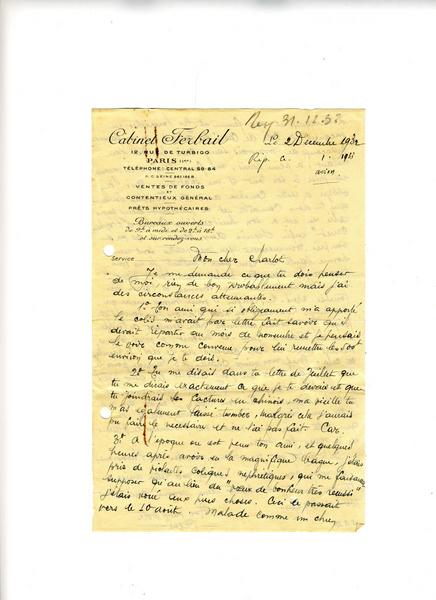 Rey 31.12.32
Cabinet Ferbail
Le 2 Décembre 1932
12, RUE DE TURBIGO
PARIS (1er)
Rép. a. 1. 1933
TÉLÉPHONE: CENTRAL 59-84
avion
R. C. SEINE
VENTES DE FONDS
ET
CONTENTIEUX GÉNÉRAL
PRÊTS HYPOTHÉCAIRES
Bureaux ouverts
de 9h à midi et de 2h à 18h
et sur rendez-vous
SERVICE
Mon cher Charlot
Je me demande ce que tu dois penser
de moi, rien de bon probablement mais j'ai
des circonstances attenuantes.
1° Ton ami qui si obligeament m'a apporté
le colis m'avait par lettre fait savoir qu'il
devait repartir au mois de novembre et je pensais
le voir comme convenu pour lui remettre les 500f
environ que je te dois.
2° Tu me disais dans ta lettre de Juillet que
tu me dirais exactement ce que je te devais et que
tu joindrais les factures en chinois, ma vieille tu
m'as egalement laissé tomber, malgré cela j'aurais
pu faire le necessaire et ne l'ai pas fait. Car.
3° A l'epoque ou est venu ton ami, et quelques
heures après avoir vu la magnifique bague, j'étais
pris de violentes coliques nephretiques, qui me faisaient
supposer qu'au lieu du "vœux de bonheur très réussi"
j'étais voué aux pires choses. Ceci se passait
vers le 10 août. Malade comme un chien